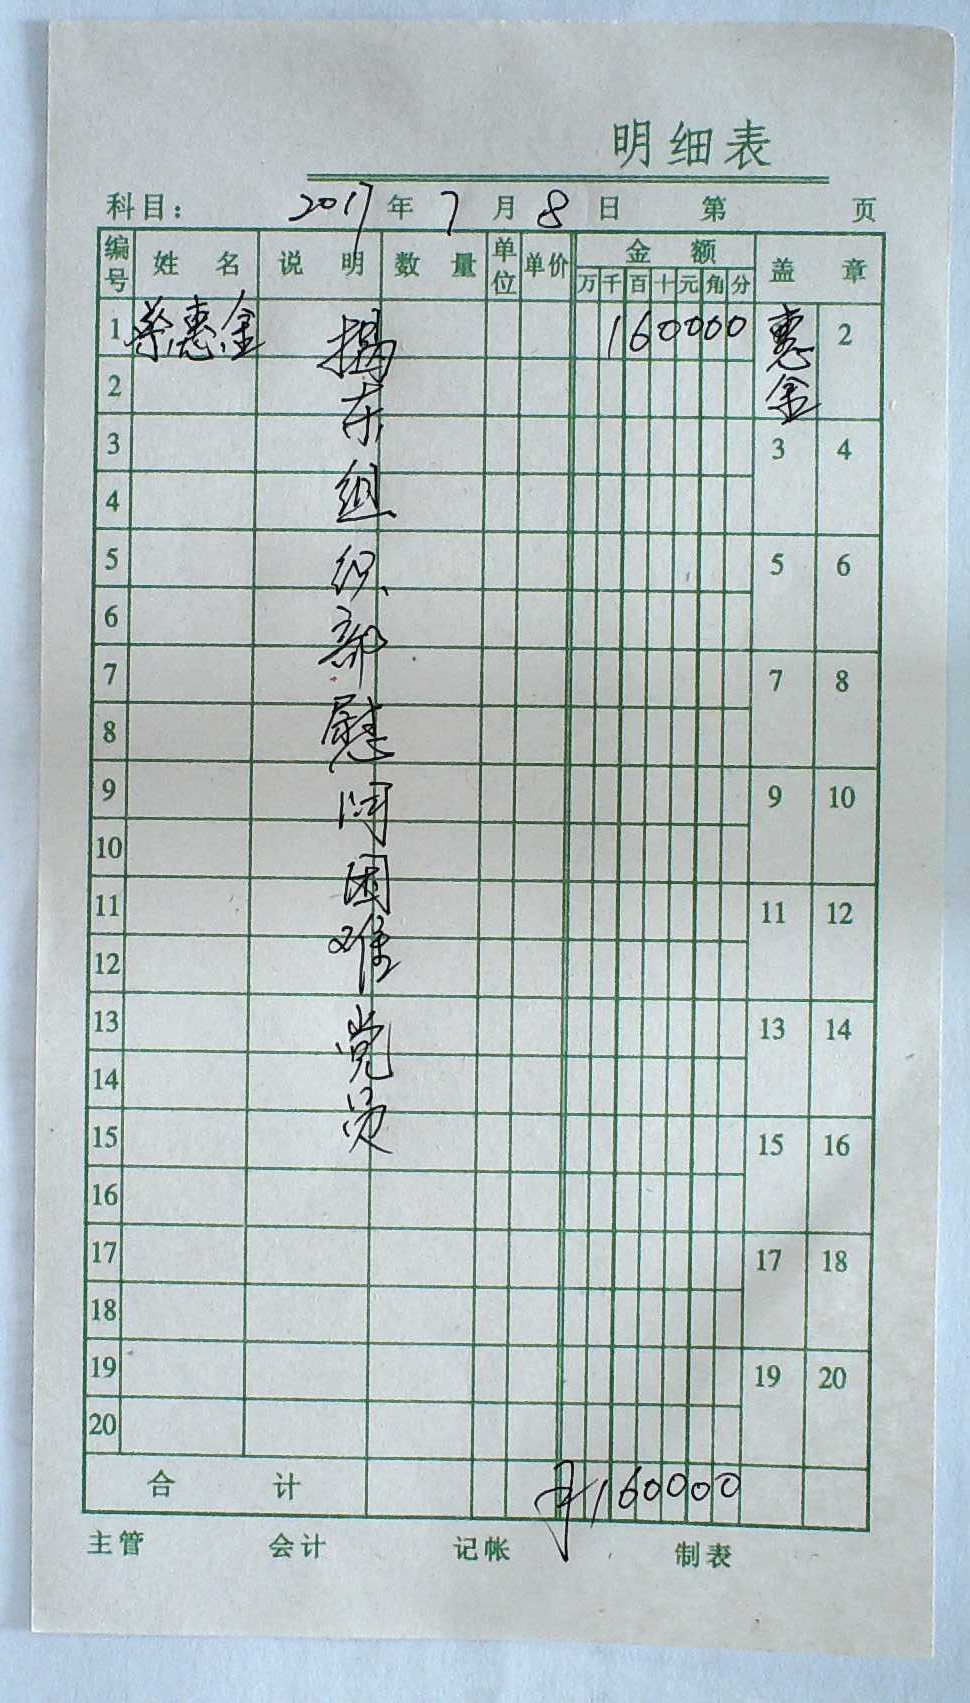 明细表
科目： 2017年7月8日 第 页
编号 姓名 说明 数量 单位 单价 金额 盖章
万 千 百 十 元 角 分
1 荣惠金 揭东组织部慰问困难党员 160000 惠金 2
2
3 3 4
4
5 5 6
6
7 7 8
8
9 9 10
10
11 11 12
12
13 13 14
14
15 15 16
16
17 17 18
18
19 19 20
20
合计 ¥160000
主管 会计 记帐 制表